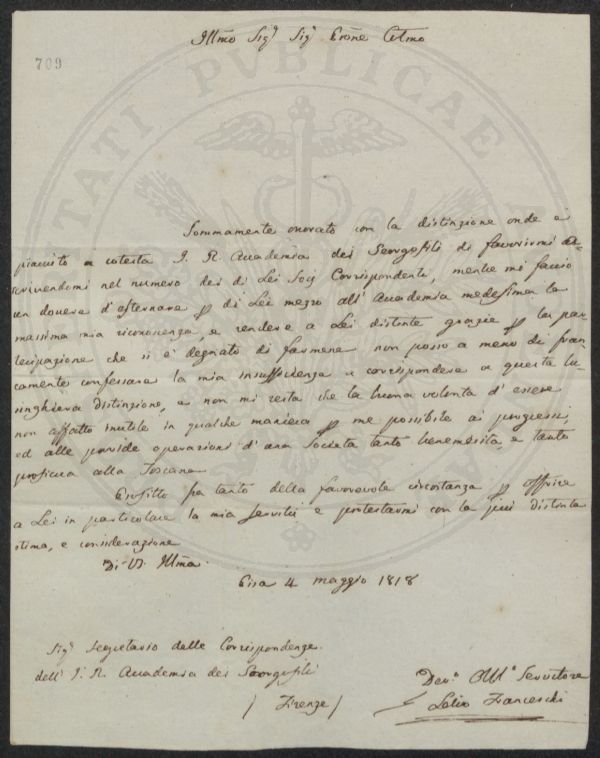 Illmo Sigr Sigr Prone Colmo
709
Sommamente onorato con la distinzione onde è
piaciuto a cotesta I. R. Accademia dei Georgofili di favorirmi as-
crivendomi nel numero dei di Lei Socj Corrispondenti, mentre mi faccio
un dovere d'esternare p di Lei mezzo all' Accademia medesima la
massima mia riconoscenza, e rendere a Lei distinte grazie p la par-
tecipazione che si è degnato di farmene non posso a meno di fran-
camente confessare la mia insufficienza a corrispondere a questa lu-
singhiera distinzione, e non mi resta che la buona volontà d' essere
non affatto inutile in qualche maniera p me possibile ai progressi,
ed alle provide operazioni d' una Società tanto benemerita, e tanto
proficua alla Toscana
Profitto pertanto della favorevole circostanza p offrire
a Lei in particolare la mia servitù e protestarmi con la più distinta
stima, e considerazione
Di V. Illma
Pisa 4 maggio 1818
Sigr Segretario delle Corrispondenze
dell' I. R. Accademia dei Georgofili
/ Firenze /
Devo Obblo Servitore
Lelio Franceschi
TATI PVBLICAE